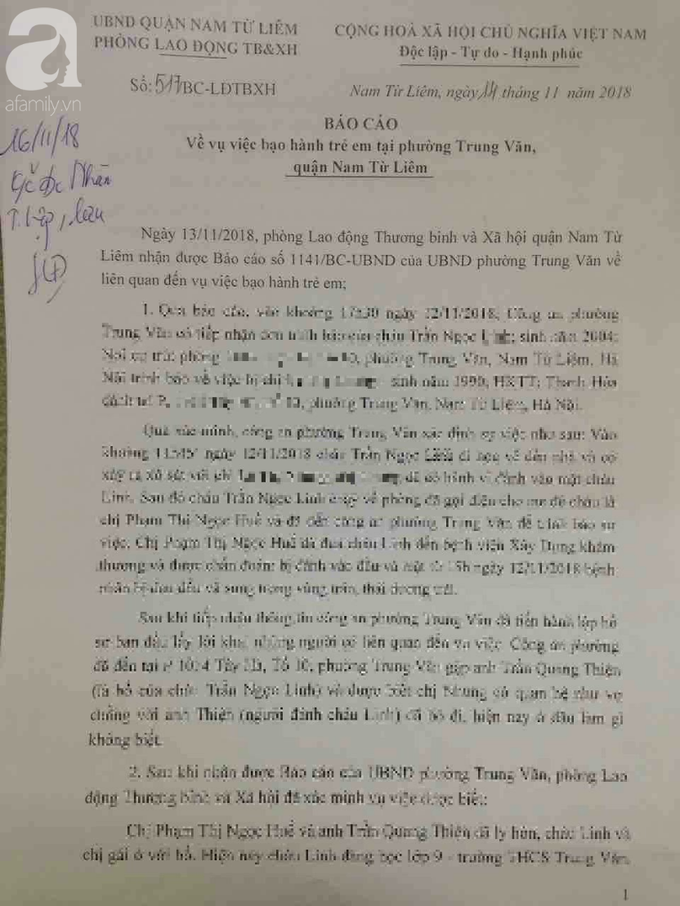 UBND QUẬN NAM TỪ LIÊM
PHÒNG LAO ĐỘNG TB&XH
CỘNG HOÀ XÃ HỘI CHỦ NGHĨA VIỆT NAM
Độc lập - Tự do - Hạnh phúc
Số: 517/BC-LĐTBXH
Nam Từ Liêm, ngày 14 tháng 11 năm 2018
afamily.vn
16/11/18
BÁO CÁO
Về vụ việc bạo hành trẻ em tại phường Trung Văn,
quận Nam Từ Liêm
Ngày 13/11/2018, phòng Lao động Thương binh và Xã hội quận Nam Từ
Liêm nhận được Báo cáo số 1141/BC-UBND của UBND phường Trung Văn về
liên quan đến vụ việc bạo hành trẻ em;
1. Qua báo cáo, vào khoảng 17h30 ngày 12/11/2018, Công an phường
Trung Văn có tiếp nhận đơn trình báo của cháu Trần Ngọc Linh; sinh năm 2004;
Nơi cư trú: phòng phường Trung Văn, Nam Từ Liêm, Hà
Nội trình báo về việc bị chị sinh năm 1990; HKTT: Thanh Hóa
đánh tại P. phường Trung Văn, Nam Từ Liêm, Hà Nội.
Quá xác minh, công an phường Trung Văn xác định sự việc như sau: Vào
khoảng 11h45' ngày 12/11/2018 cháu Trần Ngọc Linh đi học về đến nhà và có
xảy ra xô sát với chị đã có hành vi đánh vào mặt cháu
Linh. Sau đó cháu Trần Ngọc Linh chạy về phòng đã gọi điện cho mẹ đẻ cháu là
chị Phạm Thị Ngọc Huế và đã đến công an phường Trung Văn để trình báo sự
việc. Chị Phạm Thị Ngọc Huế đã đưa cháu Linh đến bệnh viện Xây Dựng khám
thương và được chẩn đoán: bị đánh vào đầu và mặt từ 15h ngày 12/11/2018 bệnh
nhân bị đau đầu và sưng trong vùng trán, thái dương trái.
Sau khi tiếp nhận thông tin công an phường Trung Văn đã tiến hành lập hồ
sơ ban đầu lấy lời khai những người có liên quan đến vụ việc. Công an phường
đã đến tại P Tổ 10, phường Trung Văn gặp anh Trần Quang Thiện
(là bố của cháu Trần Ngọc Linh) và được biết chị Nhung có quan hệ như vợ
chồng với anh Thiện (người đánh cháu Linh) đã bỏ đi, hiện nay ở đâu làm gì
không biết.
2. Sau khi nhận được Báo cáo của UBND phường Trung Văn, phòng Lao
động Thương binh và Xã hội đã xác minh vụ việc được biết:
Chị Phạm Thị Ngọc Huế và anh Trần Quang Thiện đã ly hôn, cháu Linh và
chị gái ở với bố. Hiện nay cháu Linh đang học lớp 9 - trường THCS Trung Văn.
1